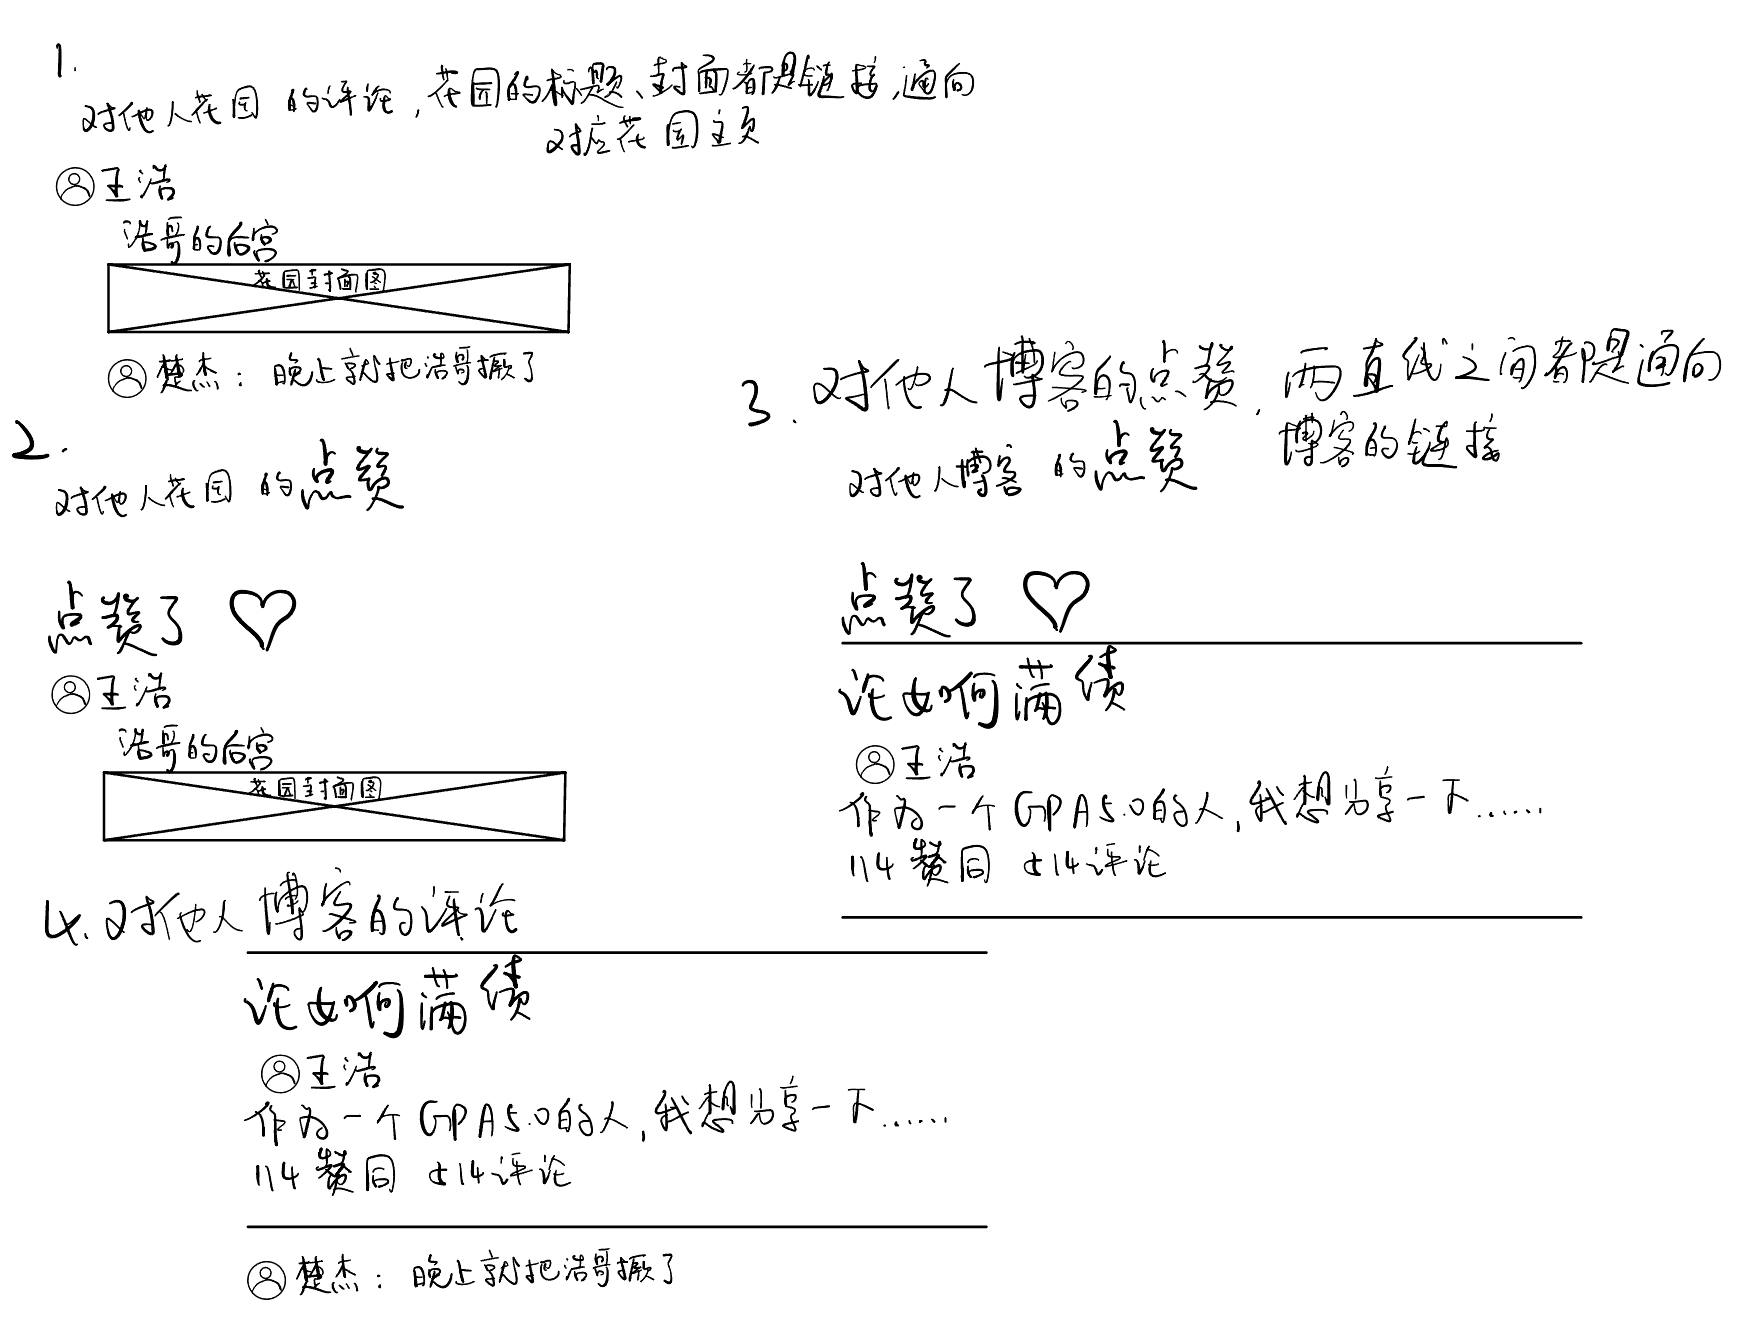 1.
对他人花园的评论,花园的标题、封面都是链接,通向
对应花园主页
王浩
浩哥的后宫
花园封面图
楚杰:晚上就把浩哥撅了
2.
对他人花园的点赞
点赞了
王浩
浩哥的后宫
花园封面图
3.对他人博客的点赞,两直线之间都是通向
博客的链接
对他人博客的点赞
点赞了
论如何满绩
王浩
作为一个GPA5.0的人,我想分享一下......
114赞同 514评论
4.对他人博客的评论
论如何满绩
王浩
作为一个GPA5.0的人,我想分享一下......
114赞同 514评论
楚杰:晚上就把浩哥撅了